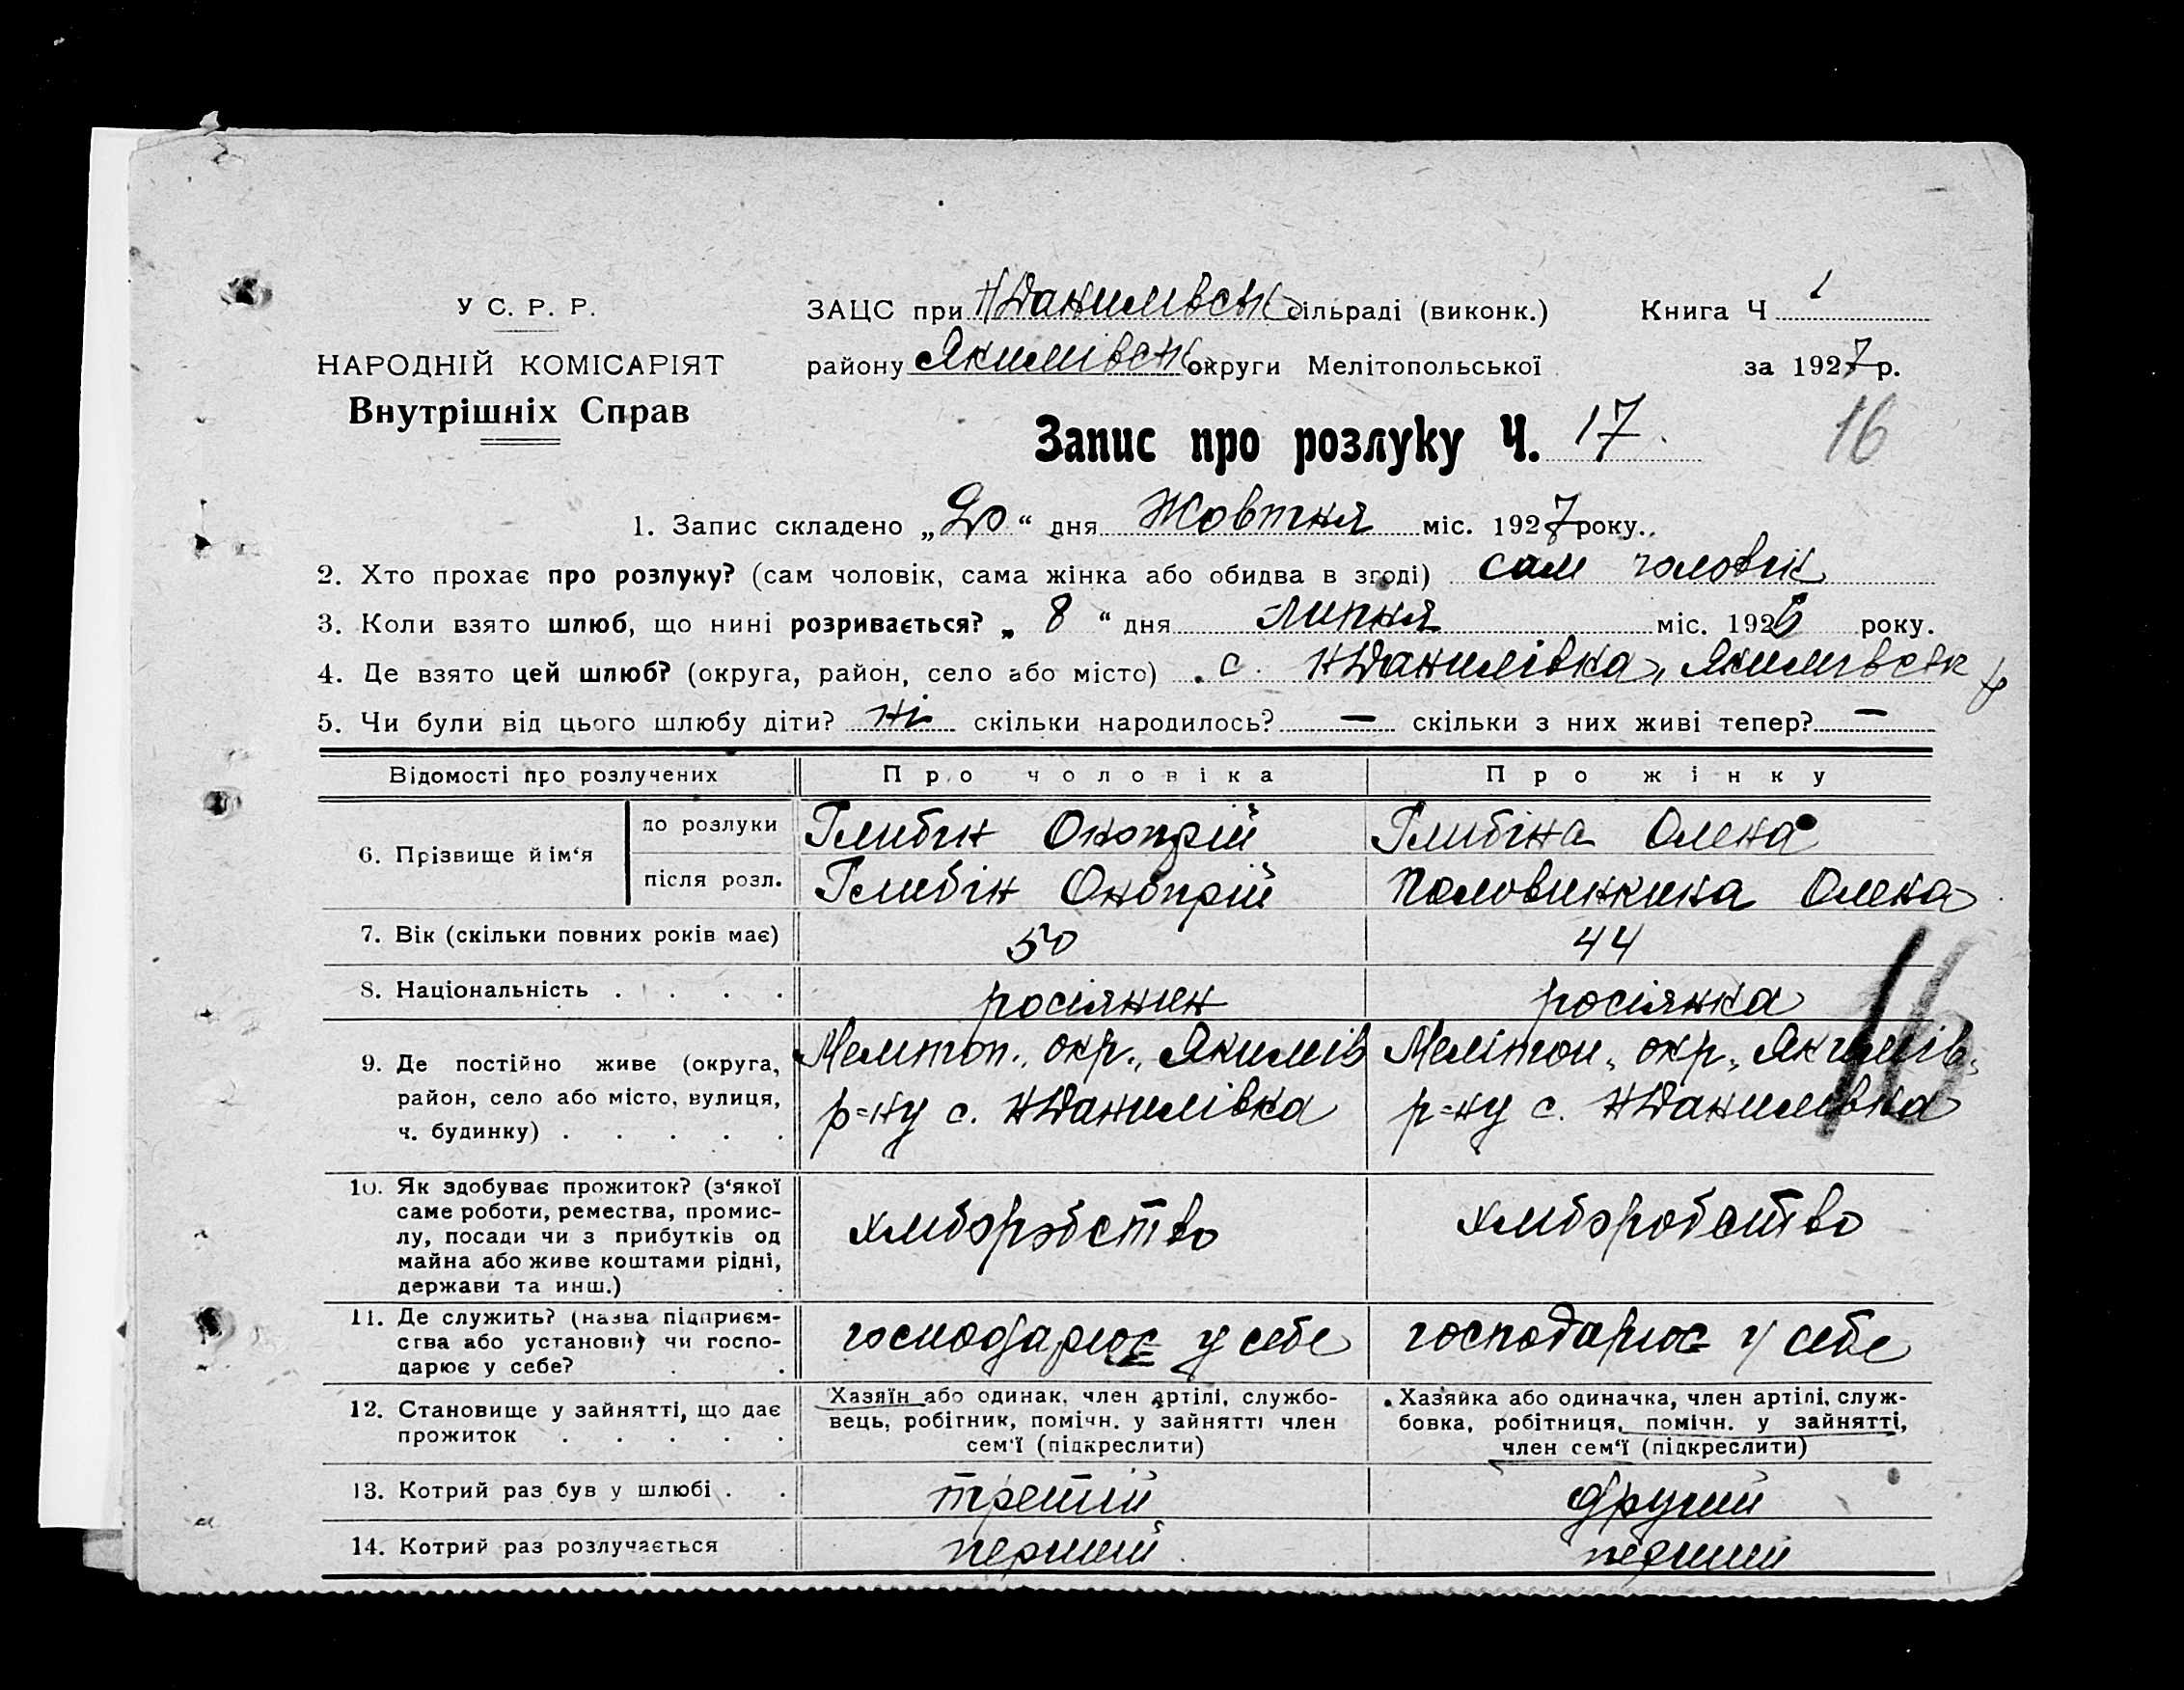 У С. Р. Р.
НАРОДНІЙ КОМІСАРІЯТ
Внутрішніх Справ
ЗАЦС при НДанилівськ сільраді (виконк.)
району Якимівськ округи Мелітопольської
Книга Ч 1
за 1927 р.
Запис про розлуку Ч. 17.
16
1. Запис складено „20“ дня Жовтня міс. 1927 року.
2. Хто прохає про розлуку? (сам чоловік, сама жінка або обидва в згоді) сам чоловік
3. Коли взято шлюб, що нині розривається? „ 8 “ дня Липня міс. 1926 року.
4. Де взято цей шлюб? (округа, район, село або місто) с. НДанилівка, Якимівськ р
5. Чи були від цього шлюбу діти? ні скільки народилось? — скільки з них живі тепер? —
Відомості про розлучених
Про чоловіка
Про жінку
6. Прізвище й ім‘я
до розлуки
Глибін Онопрій
Глибіна Олена
після розл.
Глибін Онопрій
Половинкина Олена
7. Вік (скільки повних років має)
50
44
8. Національність . . . .
росіянин
росіянка
9. Де постійно живе (округа,
район, село або місто, вулиця,
ч. будинку) . . . . .
Мелітоп. окр., Якимів
р=ну с. НДанилівка
Мелітоп. окр., Якимів.
р=ну с. НДанилівка
16
10. Як здобуває прожиток? (з‘якої
саме роботи, ремества, промис-
лу, посади чи з прибутків од
майна або живе коштами рідні,
держави та инш.) .
хліборобство
хліборобство
11. Де служить? (назва підприєм-
ства або установи) чи госпо-
дарює у себе? . .
господарює у себе
господарює у себе
12. Становище у зайнятті, що дає
прожиток . . . . .
Хазяїн або одинак, член артілі, службо-
вець, робітник, помічн. у зайнятті член
сем‘ї (підкреслити)
Хазяйка або одиначка, член артілі, служ-
бовка, робітниця, помічн. у зайнятті,
член сем‘ї (підкреслити)
13. Котрий раз був у шлюбі . .
третій
другий
14. Котрий раз розлучається
перший
перший